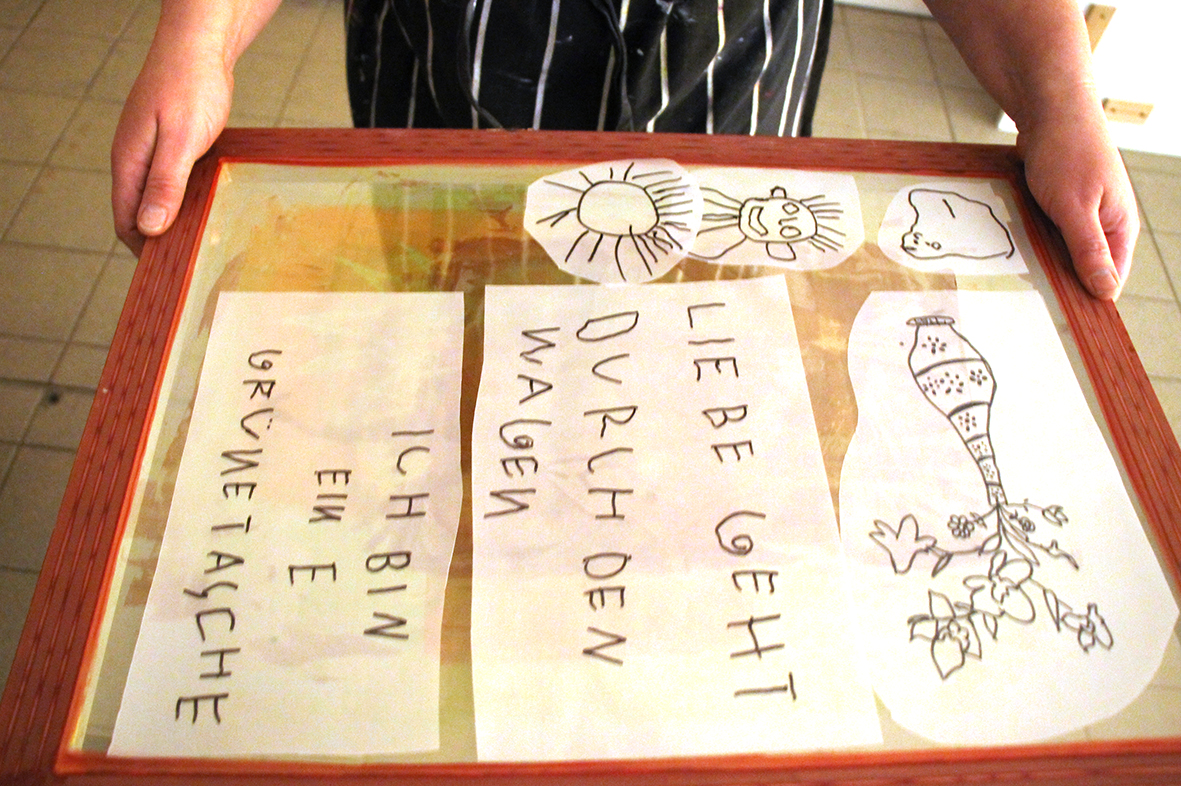 LIEBE GEHT
DURCH DEN
WAGEN
ICH BIN
EIN E
GRÜNETASCHE